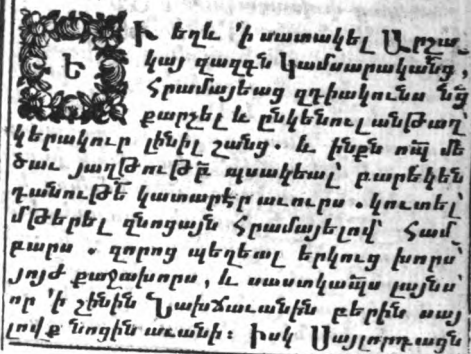 ԵՒ եղև 'ի սատակել Արշա֊
կայ զազգն Կամսարականց,
հրամայեաց զդիակունս նց̃
քարշել և ընկենուլ անթաղ՝
կերակուր լինիլ շանց. և ինքն ոպ̃ մե
ծաւ յաղթութբ̃ պսակեալ՝ բարեկեն
դանութե̃ կատարէր աւուրս. կուտել՝
մթերել զնոցայն հրամայելով՝ համ
բարս. զորոց պեղեալ երկուց խորս՝
յոյժ քաջախորս, և սաստկապս̃ լայնս՝
որ 'ի շինին Նախճաւանին բերին սայ
լովք նոցին աւանի։ Իսկ Սայլորդացն